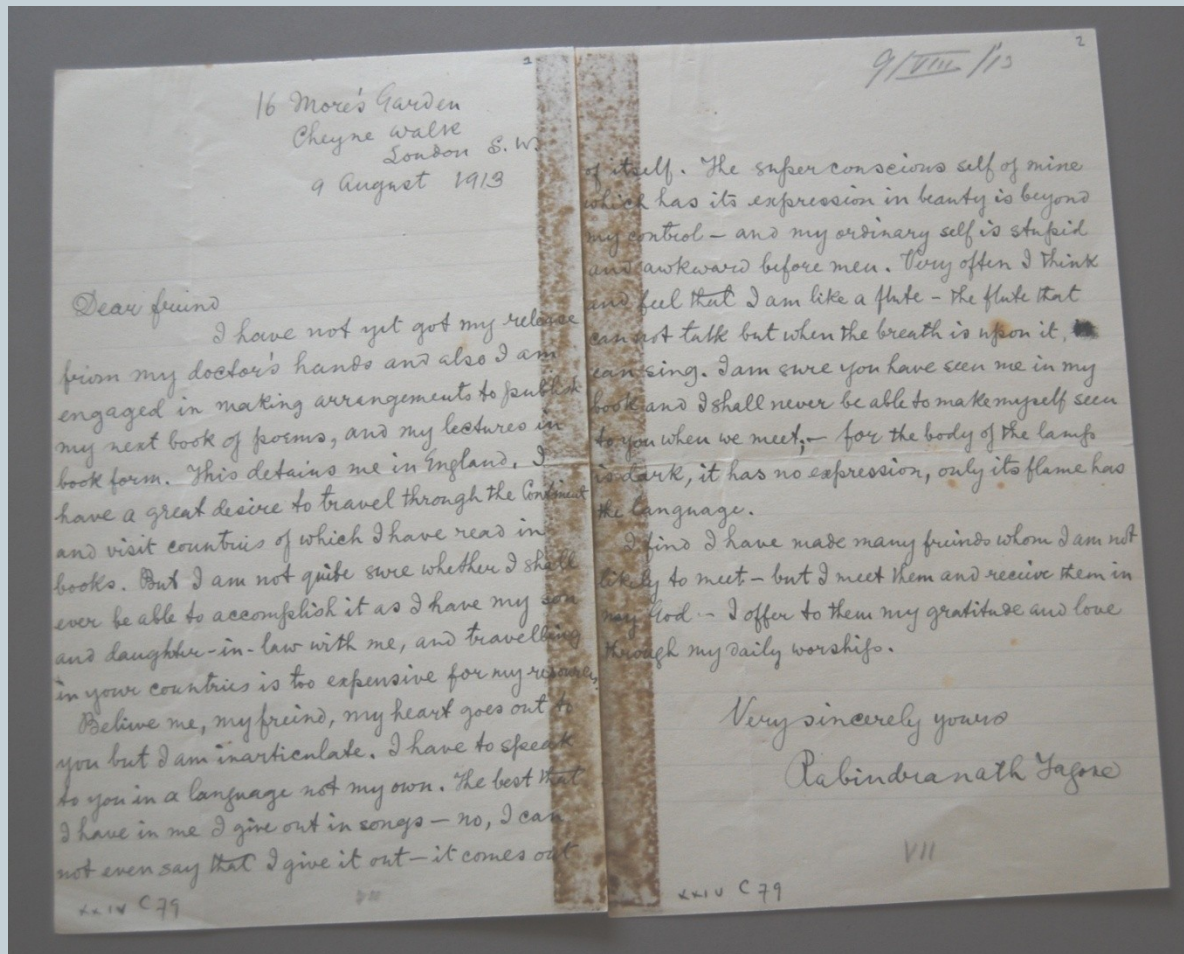 2
16 More's Garden
Cheyne Walk
London S. W.
9 August 1913
Dear freind
I have not yet got my release
from my doctor's hands and also I am
engaged in making arrangements to publish
my next book of poems, and my lectures in
book form. This detains me in England. I
have a great desire to travel through the Continent
and visit countries of which I have read in
books. But I am not quite sure whether I shall
ever be able to accomplish it as I have my son
and daughter-in-law with me, and travelling
in your countries is too expensive for my resources.
Believe me, my freind, my heart goes out to
you but I am inarticulate. I have to speak
to you in a language not my own. The best that
I have in me I give out in songs — no, I can
not even say that I give it out — it comes out
xxiv C 79
VII
2
9/VIII/13
of itself. The super conscious self of mine
which has its expression in beauty is beyond
my control — and my ordinary self is stupid
and awkward before men. Very often I think
and feel that I am like a flute — the flute that
cannot talk but when the breath is upon it,
can sing. I am sure you have seen me in my
book and I shall never be able to make myself seen
to you when we meet; — for the body of the lamp
is dark, it has no expression, only its flame has
the language.
I find I have made many freinds whom I am not
likely to meet — but I meet them and receive them in
my God — I offer to them my gratitude and love
through my daily worship.
Very sincerely yours
Rabindranath Tagore
VII
xxiv C 79